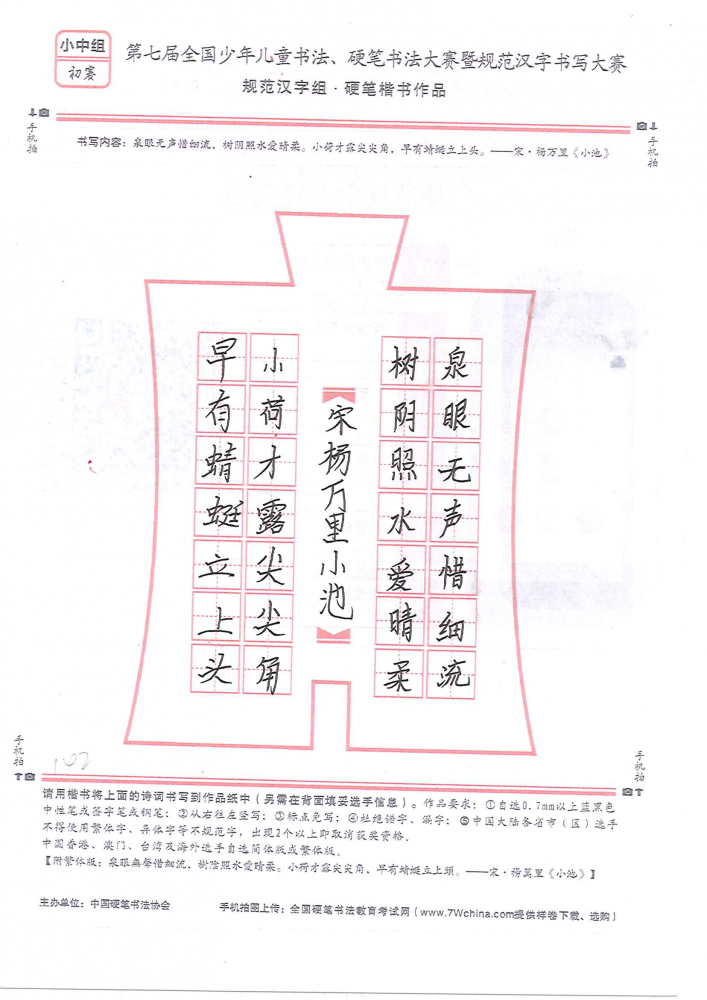 小中组
初赛
第七届全国少年儿童书法、硬笔书法大赛暨规范汉字书写大赛
规范汉字组·硬笔楷书作品
手机拍
手机拍
书写内容：泉眼无声惜细流，树阴照水爱晴柔。小荷才露尖尖角，早有蜻蜓立上头。——宋·杨万里《小池》
泉眼无声惜细流
树阴照水爱晴柔
宋杨万里小池
小荷才露尖尖角
早有蜻蜓立上头
手机拍
手机拍
102
请用楷书将上面的诗词书写到作品纸中（另需在背面填妥选手信息）。作品要求：①自选0.7mm以上蓝黑色
中性笔或签字笔或钢笔；②从右往左竖写；③标点免写；④杜绝错字、漏字；⑤中国大陆各省市（区）选手
不得使用繁体字、异体字等不规范字，出现2个以上即取消获奖资格。
中国香港、澳门、台湾及海外选手自选简体版或繁体版。
【附繁体版：泉眼無聲惜細流，樹陰照水愛晴柔。小荷才露尖尖角，早有蜻蜓立上頭。——宋·楊萬里《小池》】
主办单位：中国硬笔书法协会
手机拍图上传：全国硬笔书法教育考试网（www.7Wchina.com提供样卷下载、选购）